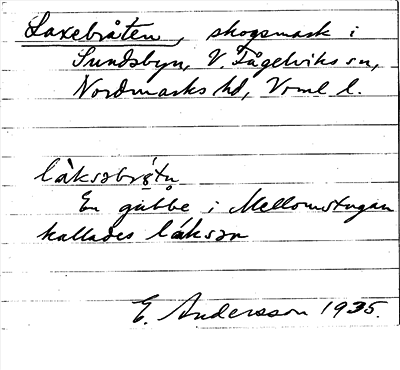 Laxebråten, skogsmark i
Sundsbyn, V. Fågelviks sn,
Nordmarks hd, Vrml l.
làksəbrǿ́tn
En gubbe i Mellomstugan
kallades láksən
E. Andersson 1935.